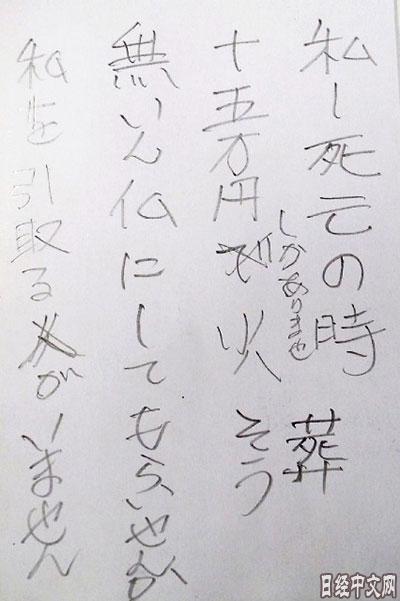 私し死亡の時 葬
しかありませ
十五万円 火そう
無いん仏にしてもらいせんか
私を引取る人がいません
日经中文网